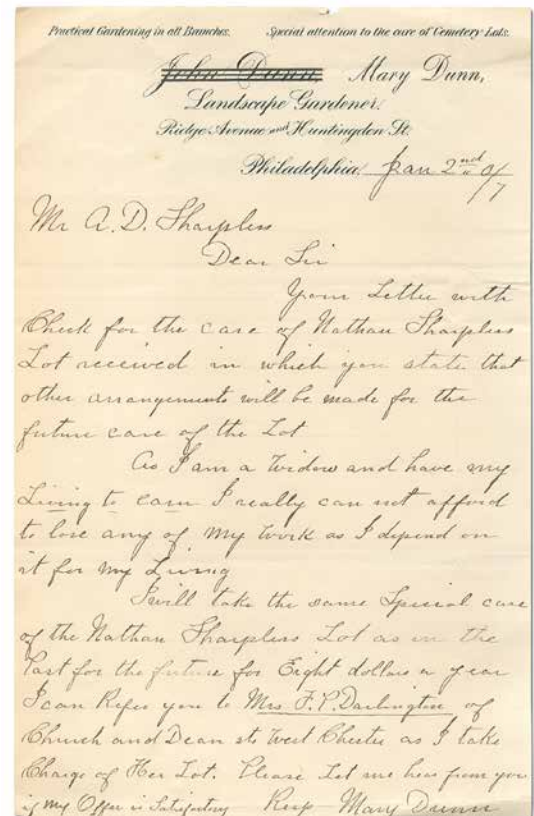 Practical Gardening in all Branches. Special attention to the care of Cemetery Lots.
John Dunn, Mary Dunn,
Landscape Gardener,
Ridge Avenue and Huntingdon St.
Philadelphia, Jan 2nd 9/7
Mr A. D. Sharpless
Dear Sir
Your Letter with
Check for the care of Nathan Sharpless
Lot received in which you state that
other arrangements will be made for the
future care of the Lot
As I am a Widow and have my
Living to earn I really can not afford
to lose any of my Work as I depend on
it for my Living
I will take the same Special care
of the Nathan Sharpless Lot as in the
Past for the future for Eight dollars a year
I can Refer you to Mrs F. P. Darlington of
Church and Dean sts West Chester as I take
Charge of Her Lot. Please Let me hear from you
if my Offer is Satisfactory Resp Mary Dunn